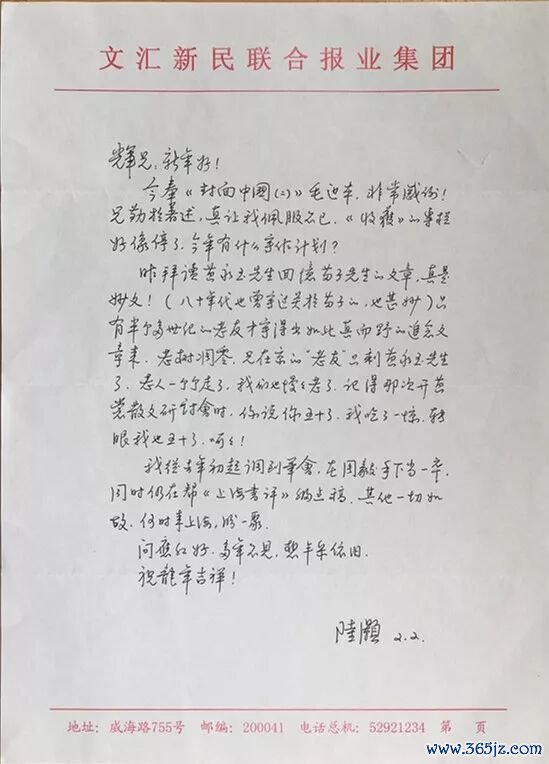 文汇新民联合报业集团
辉兄：新年好！
今奉《封面中國(二)》毛边本，非常感谢！
兄勤於著述，真让我佩服不已，《收穫》的專栏
好像停了，今年有什么寫作计划？
昨拜读黄永玉先生回憶苗子先生的文章，真是
妙文！（八十年代也曾寫过关於苗子的，也甚妙）只
有半个多世纪的老友才寫得出如此真而野的追念文
章来。老树凋零，兄在京的“老友”只剩黄永玉先生
了。老人一个个走了，我们也慢慢老了。记得那次开黄
裳散文研討會时，你说你五十了，我吃了一惊，转
眼我也五十了，呵呵！
我從去年初起调到筆會，在周毅手下当一卒，
同时仍在帮《上海書评》编点稿，其他一切如
故。何时来上海，盼一聚。
问應红好，多年不见，想丰采依旧。
祝龍年吉祥！
陸灝 2.2.
地址：威海路755号 邮编：200041 电话总机：52921234 第 页
www.365jz.com